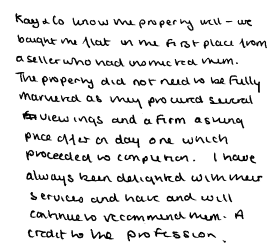 Kay & Co know the property well - we
bought the flat in the first place from
a seller who had instructed them.
The property did not need to be fully
marketed as they procured several
viewings and a firm asking
price offer on day one which
proceeded to completion. I have
always been delighted with their
services and have and will
continue to recommend them. A
credit to the profession.